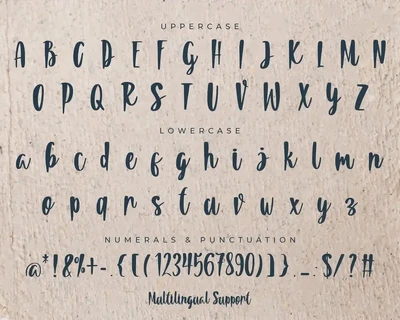 UPPERCASE
A B C D E F G H I J K L M N
O P Q R S T U V W X Y Z
LOWERCASE
a b c d e f g h i j k l m n
o p q r s t u v w x y z
NUMERALS & PUNCTUATION
@*!&%+-.{[(1234567890)]}._.:$/?#
Multilingual Support